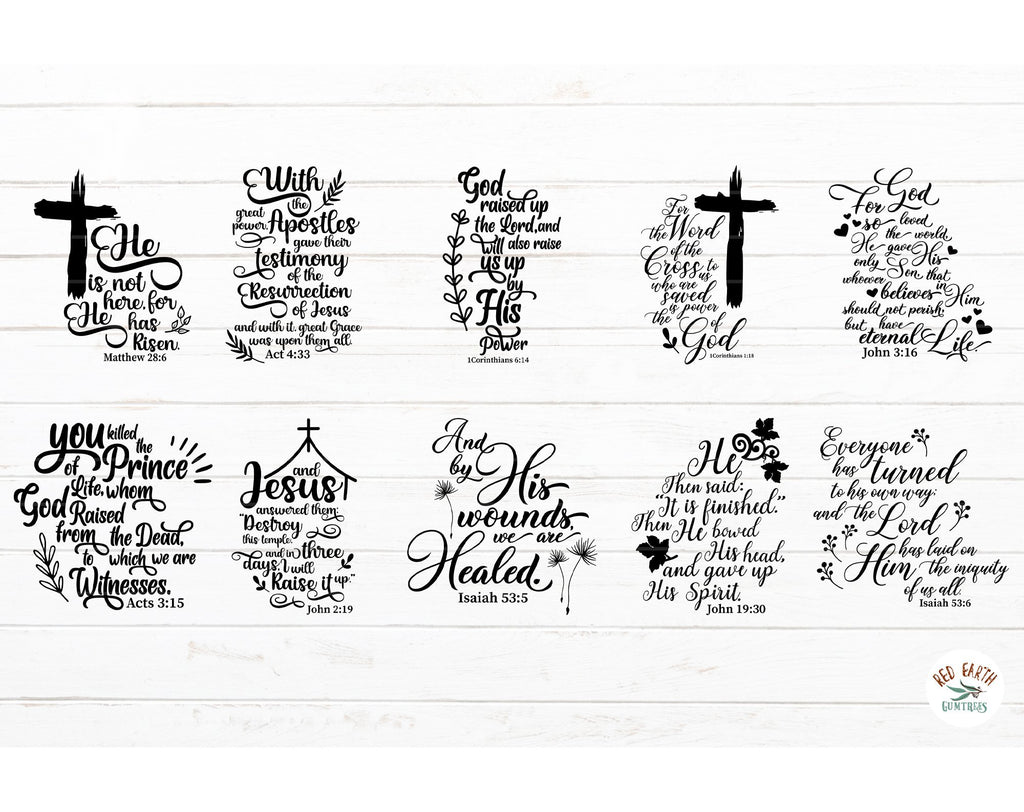 He
is not
here, for
He has
Risen.
Matthew 28:6
With
the
great
power, Apostles
gave their
testimony
of the
Resurrection
of Jesus
and with it, great Grace
was upon them all.
Act 4:33
God
raised up
the Lord,and
will also raise
us up
by
His
Power
1Corinthians 6:14
For
the Word
of the
Cross to
us
who are
saved
is power
the of
God
1Corinthians 1:18
For God
so loved
the world,
He gave His
only Son, that
whoever in
believes Him
should not perish
but have
eternal Life.
John 3:16
you killed
the
of Prince
Life, whom
God Raised
from the Dead,
to which we are
Witnesses.
Acts 3:15
and
Jesus
answered them:
"Destroy
this temple,
and in three
days, I will
Raise it up."
John 2:19
And
by His
wounds,
we are
Healed.
Isaiah 53:5
He
Then said:
"It is finished."
Then He bowed
His head,
and gave up
His Spirit.
John 19:30
Everyone
has turned
to his own way;
and the Lord
has laid on
Him the iniquity
of us all.
Isaiah 53:6
RED EARTH
GUMTREES